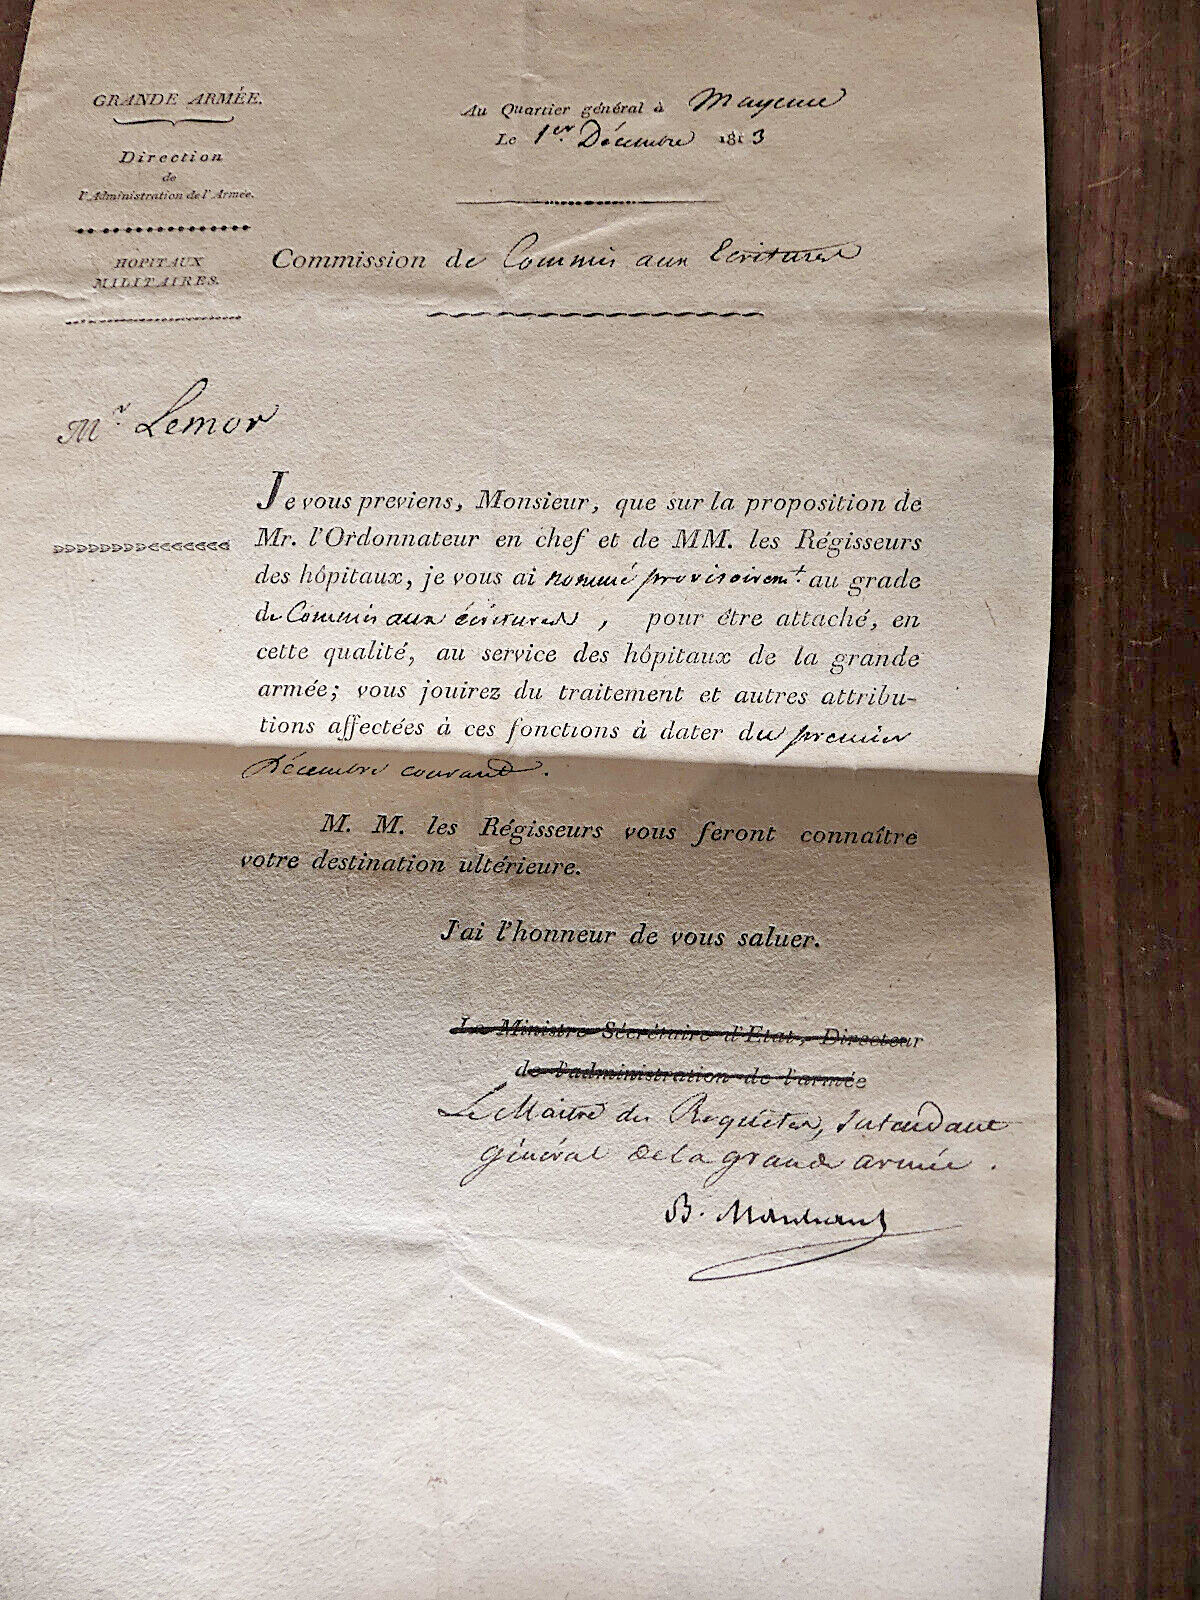 GRANDE ARMÉE.
Direction
de
l'Administration de l'Armée.
HOPITAUX
MILITAIRES.
Au Quartier général à Mayence
Le 1er Décembre 1813
Commission de Commis aux Ecritures
Mr. Lemor
Je vous previens, Monsieur, que sur la proposition de
Mr. l'Ordonnateur en chef et de MM. les Régisseurs
des hôpitaux, je vous ai nommé provisoiremt. au grade
de Commis aux écritures, pour être attaché, en
cette qualité, au service des hôpitaux de la grande
armée; vous jouirez du traitement et autres attribu-
tions affectées à ces fonctions à dater du premier
Décembre courant.
M. M. les Régisseurs vous feront connaître
votre destination ultérieure.
J'ai l'honneur de vous saluer.
Le Ministre Sécrétaire d'Etat, Directeur
de l'administration de l'armée
Le Maitre des Requêtes, Intendant
général de la grande armée.
B. Marchant